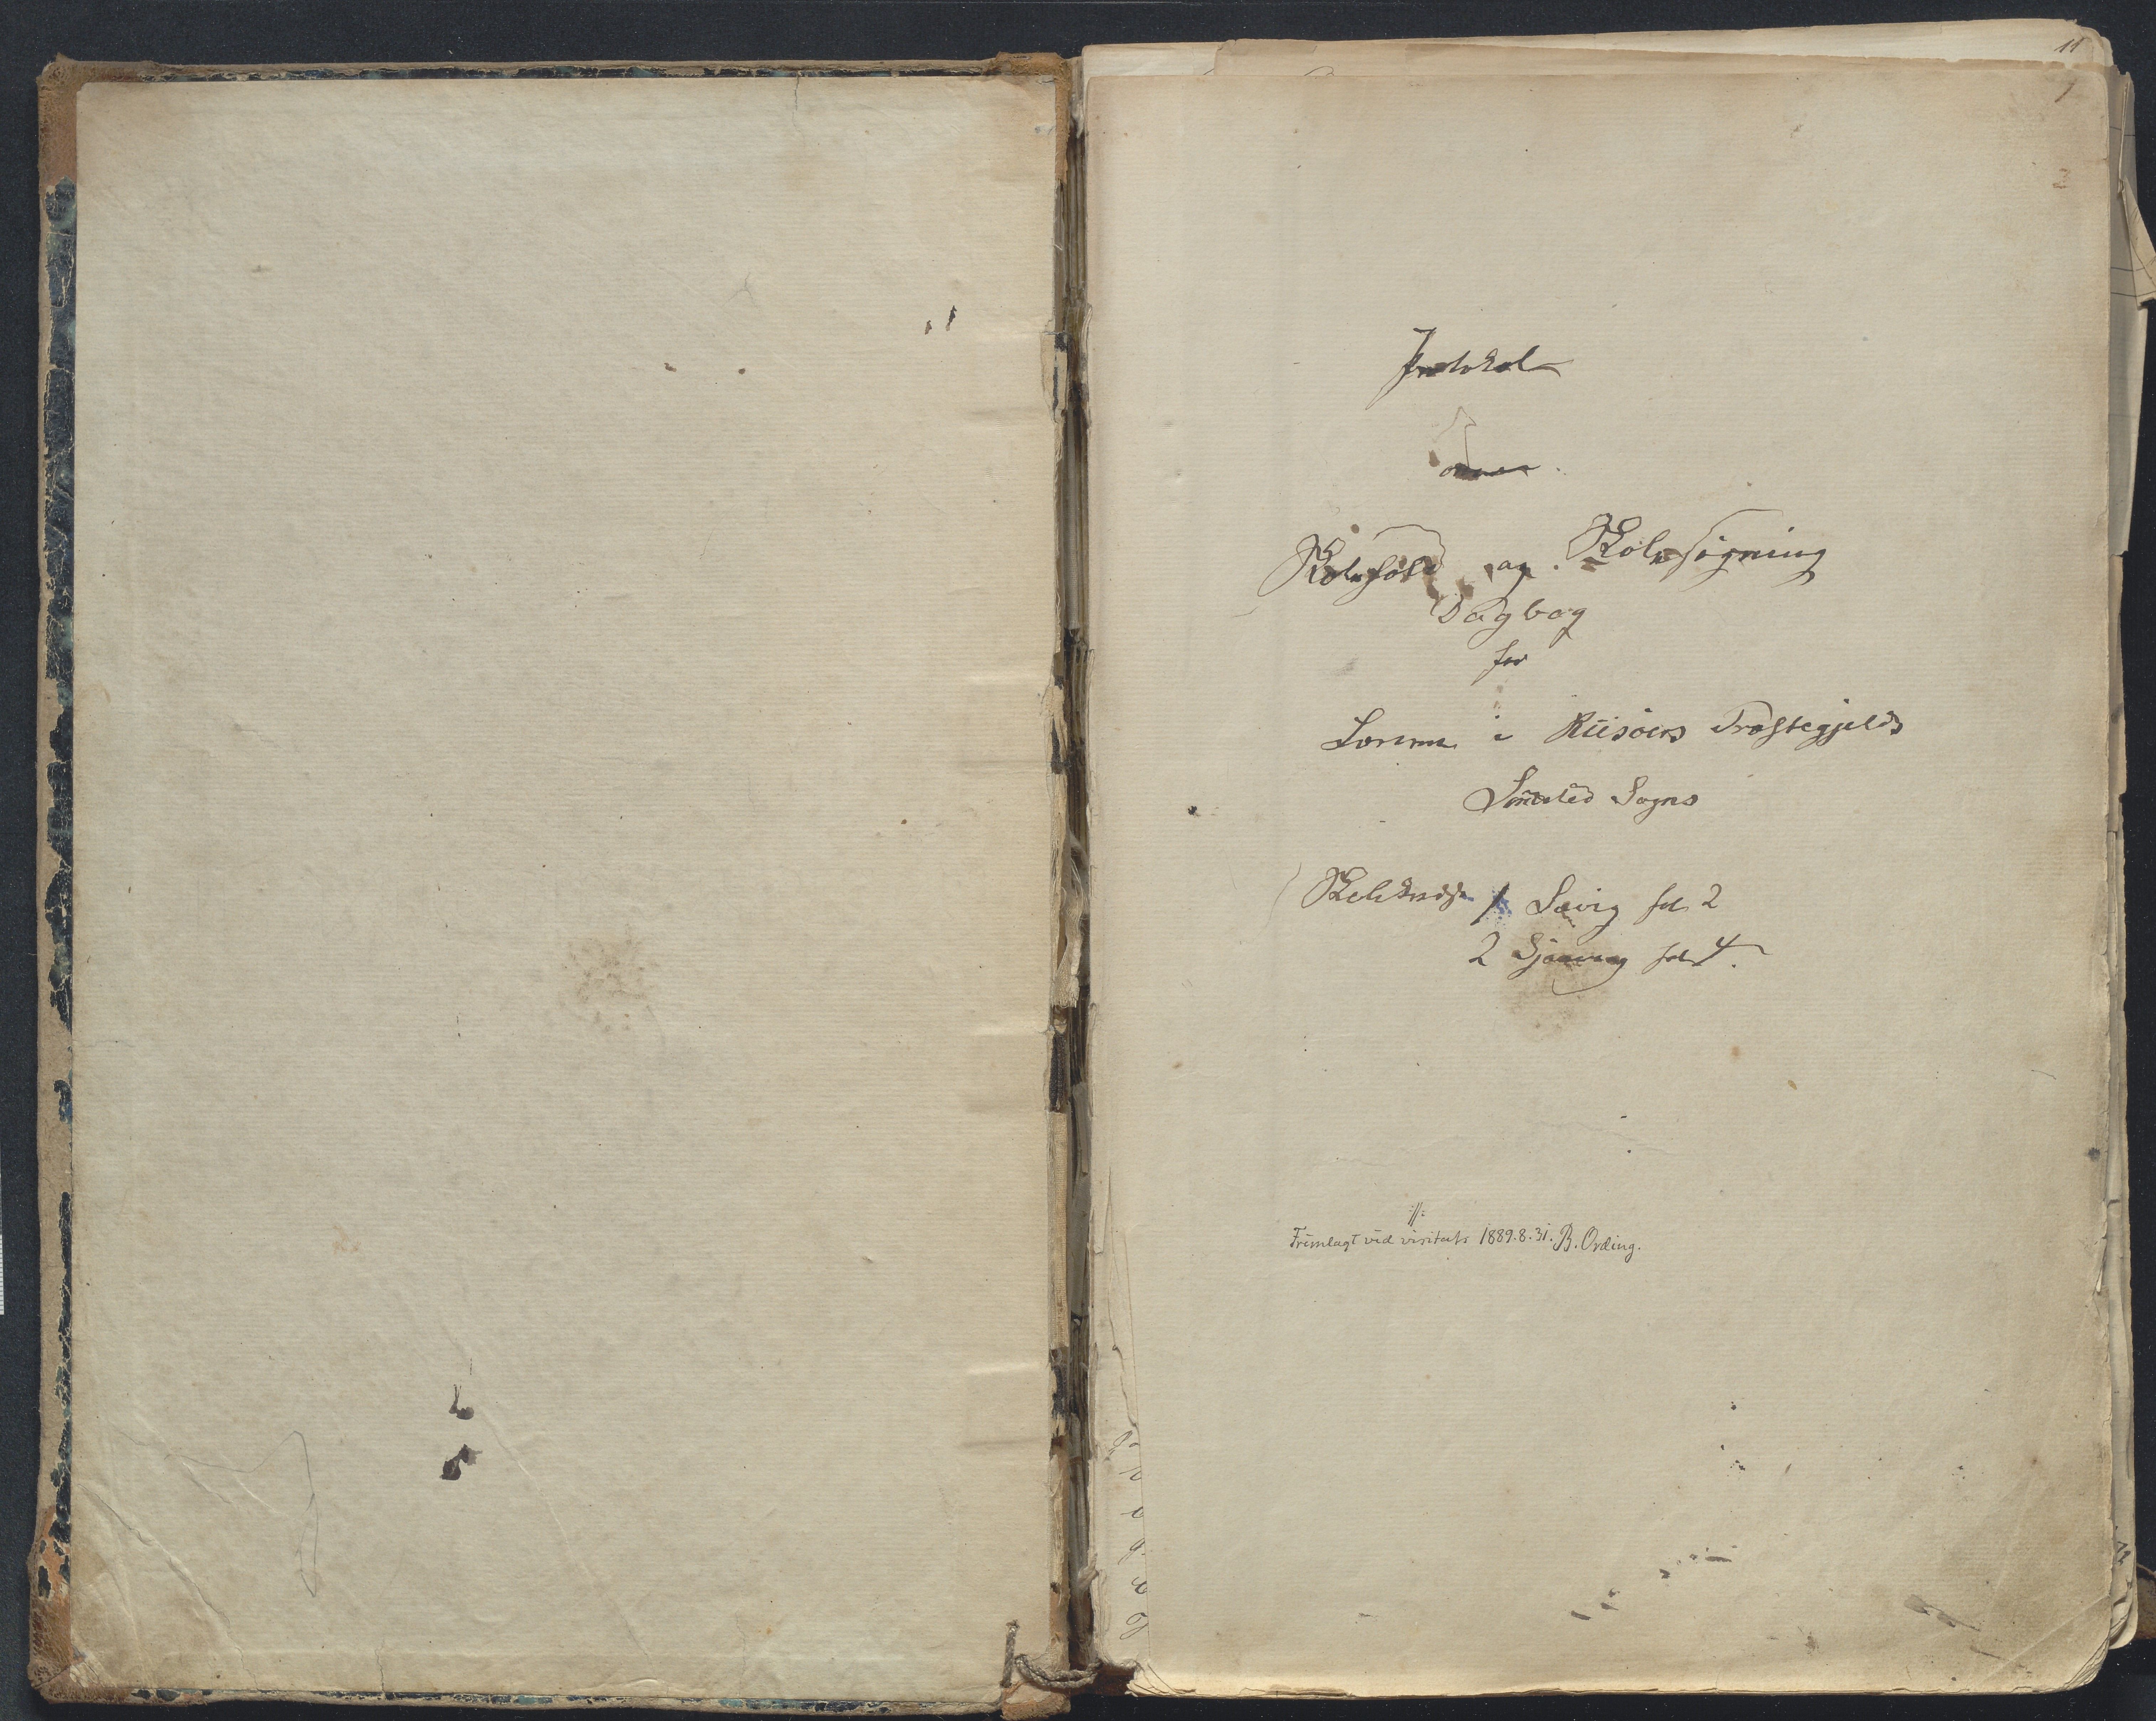 11
1
Protokol
over
Skolehold og Skolesøgning
Dagbog
for
i Riisøers Præstegjelds
Søndeled Sogns
Skolekreds 1 Savig fol 2
2 fol 4.
://:
Fremlagt ved visitats 1889.8.31. B. Ording.